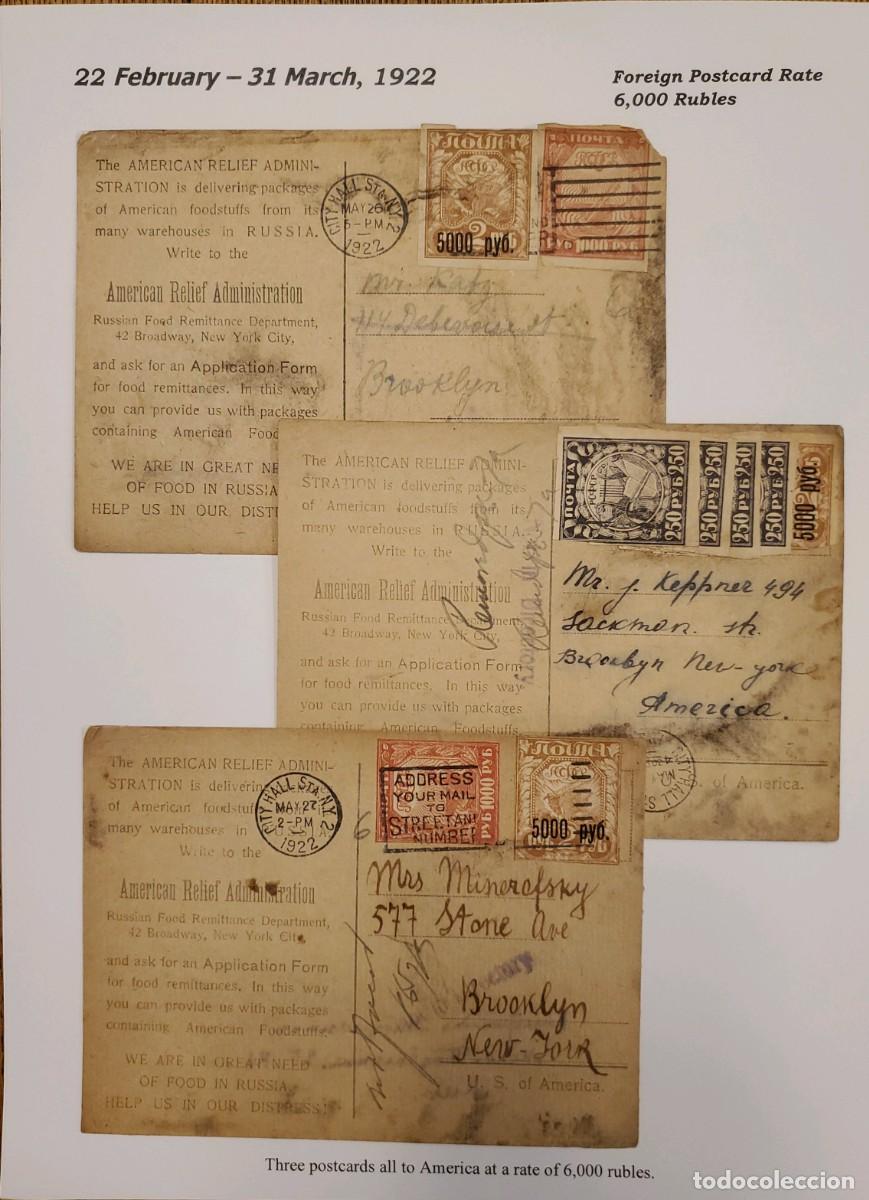 22 February – 31 March, 1922
Foreign Postcard Rate
6,000 Rubles
The AMERICAN RELIEF ADMINI-
STRATION is delivering packages
of American foodstuffs from its
many warehouses in RUSSIA.
Write to the
American Relief Administration
Russian Food Remittance Department,
42 Broadway, New York City,
and ask for an Application Form
for food remittances. In this way
you can provide us with packages
containing American Foo
WE ARE IN GREAT NE
OF FOOD IN RUSSIA
HELP US IN OUR DISTR
CITY HALL STA. N.Y. 2
MAY 26
5-PM
1922
ПОЧТА
5000 руб.
ПОЧТА
1000 РУБ
Mr. Katz
Brooklyn
The AMERICAN RELIEF ADMINI-
STRATION is delivering packages
of American foodstuffs from its
many warehouses in RUSSIA.
Write to the
American Relief Administration
Russian Food Remittance Department,
42 Broadway, New York City,
and ask for an Application Form
for food remittances. In this way
you can provide us with packages
containing American Foodstuffs.
ПОЧТА
250 РУБ 250
250 РУБ 250
250 РУБ 250
250 РУБ 250
5000 руб.
Mr. J. Keppner 494
Sackman. str.
Brookbyn New-york
America.
S. of America.
CITY HALL S
The AMERICAN RELIEF ADMINI-
STRATION is deliverin
of American foodstuf
many warehouses in RUSSIA
Write to the
American Relief Administration
Russian Food Remittance Department,
42 Broadway, New York City,
and ask for an Application Form
for food remittances. In this way
you can provide us with packages
containing American Foodstuffs.
WE ARE IN GREAT NEED
OF FOOD IN RUSSIA,
HELP US IN OUR DISTRESS!
CITY HALL STA. N.Y. 2
MAY 27
2-PM
1922
6
ADDRESS
YOUR MAIL
TO
STREET AND
NUMBER
РУБ 1000 РУБ
ПОЧТА
5000 руб.
Mrs Minerofsky
577 Stone Ave
Brooklyn
New-York
U. S. of America.
Three postcards all to America at a rate of 6,000 rubles.
todocoleccion